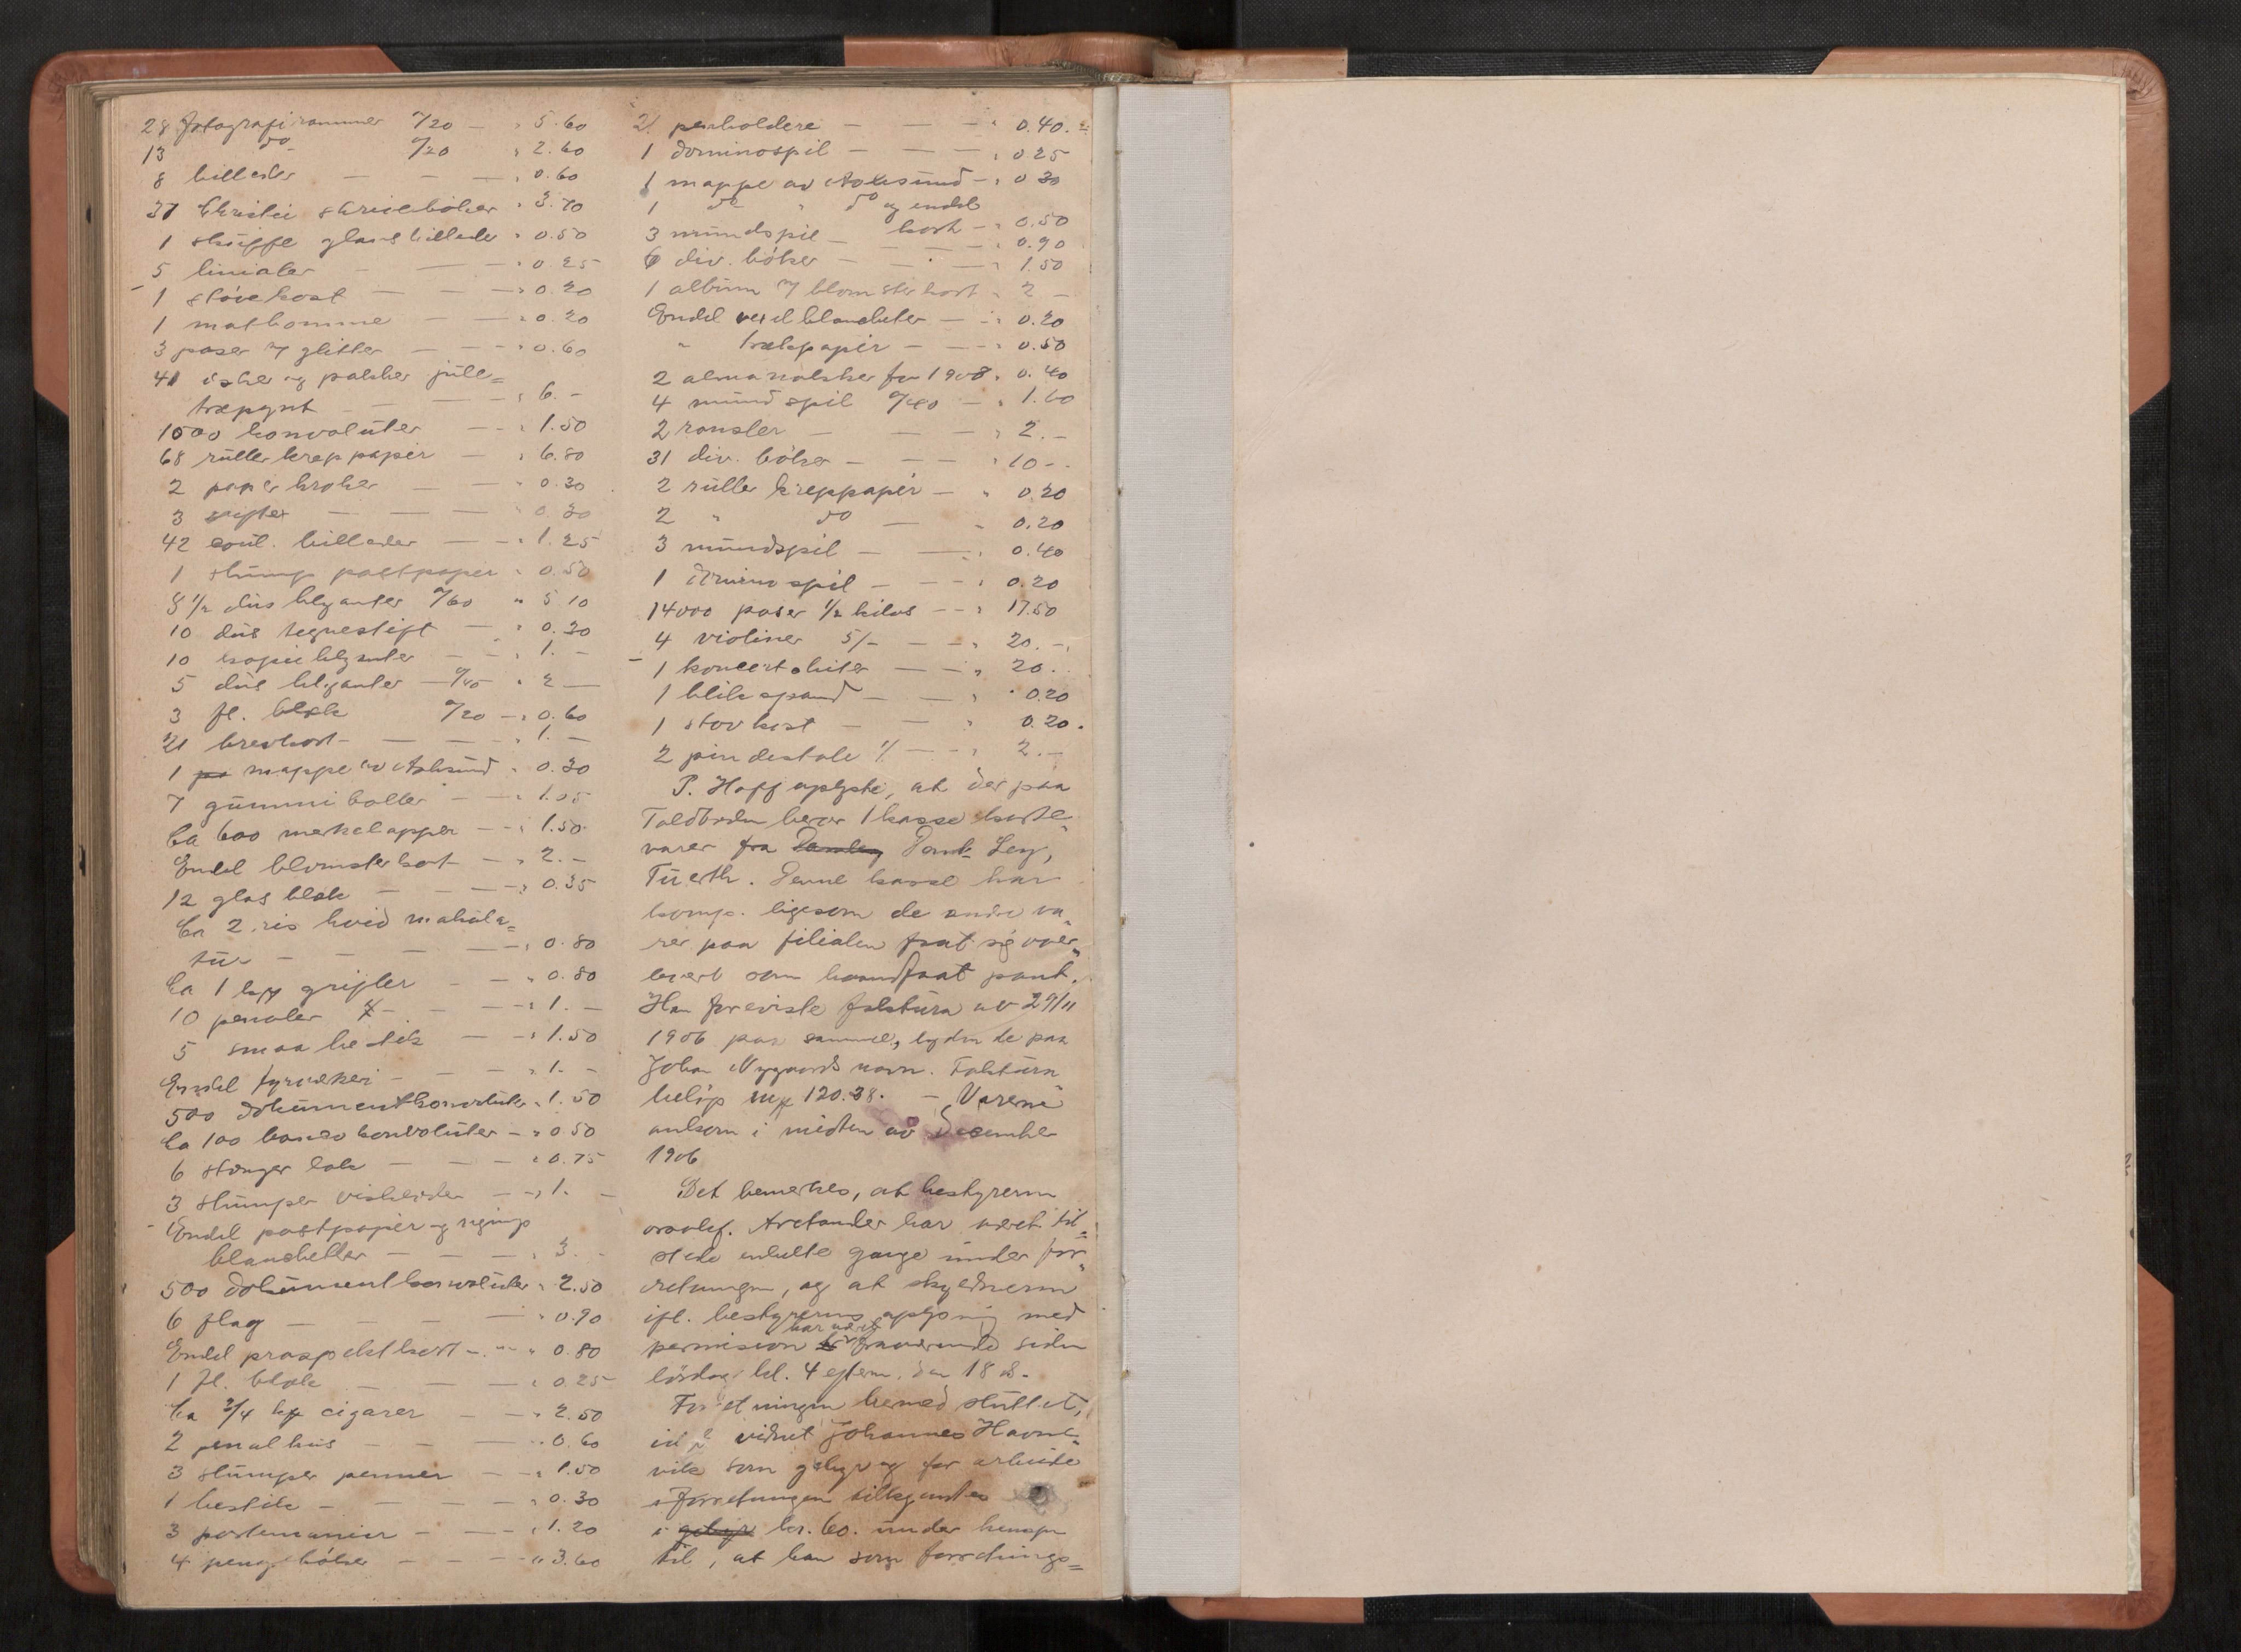 28 fotografirammer a/20 — " 5.60
13 do a/20 " 2.60
8 billeder — — — " 0.60
37 Christie skrivebøker " 3.70
1 skuffe glansbilleder " 0.50
5 linialer — — — " 0.25
1 støvekost — — — " 0.20
1 — — " 0.20
3 poser m/ glitter — — " 0.60
41 esker og pakker jule=
træpynt — — — " 6.–
1000 konvoluter — — " 1.50
68 ruller krep papir — " 6.80
2 papirkroker — — " 0.30
3 — — — " 0.30
42 coul. billeder — — " 1.25
1 stump postpapir " 0.50
8 1/2 dus blyanter a/60 " 5 10
10 dus tegnestift — " 0.30
10 kopieblyanter — — " 1.–
5 dus blyanter — a/40 " 2 —
3 fl. blæk a/20 — " 0.60
21 brevkort — — — " 1.–
1 mappe av Aalesund " 0.30
7 gummiballer — — " 1.05
Ca 600 merkelapper — — " 1.50
Endel blomsterkort — " 2.–
12 glas blæk — — — " 0.35
Ca 2 ris hvid makula=
tur — — — — " 0.80
Ca 1 kg grifler — — " 0.80
10 penaler — — — " 1.–
5 smaa bestik — — " 1.50
Endel fyrverkeri — — " 1.–
500 dokumentkonvoluter " 1.50
Ca 100 konvoluter — " 0 50
6 stænger lak — — — " 0.75
3 stumper viskelæder — — " 1.–
Endel postpapir og
blanketter — — — " 3.–
500 dokumentkonvoluter " 2.50
6 flag — — — — " 0.90
Endel prospektkort — " 0.80
1 fl. blæk — — — " 0.25
Ca 3/4 kg cigarer — — " 2.50
2 penalhus — — — " 0.60
3 stumper penner — — " 1.50
1 bestik — — — — " 0.30
3 portemonnier — — " 1.20
4 pengebøker — — — " 3.60
21 penholdere — — — " 0.40.
1 dominospil — — — " 0 25
1 mappe av Aalesund — " 0 30
1 do " do og endel
kort — " 0.50
3 mundspil — — — " 0.90
6 div. bøker — — — " 1.50
1 album m/ blomsterkort " 2 –
Endel vexelblanketter — " 0.20
" trækpapir — — " 0.50
2 almanakker for 1908 " 0.40
4 mundspil a/40 — " 1.60
2 ransler — — — " 2.–
31 div. bøker — — — " 10 –
2 ruller kreppapir — " 0.20
2 " do — " 0.20
3 mundspil — — " 0.40
1 dominospil — — — " 0.20
14000 poser 1/2 kilos — — " 17.50
4 violiner 5/– — — " 20.–
1 koncertsiter — — " 20.–
1 blikspand — — " 0.20
1 støvkost — — " 0.20.
2 pindestole — — " 2.–
P. Hoff oplyste, at der paa
Toldboden beror 1 kasse korte=
varer fra Ley,
Fuerth. Denne kasse har
komp. ligesom de andre va=
rer paa filialen faat sig over=
levert som haandfaat pant.
Han foreviste faktura av 29/11
1906 paa samme, lydende paa
Johan Nygaards navn. Faktura
beløp 120.38. – Varerne
ankom i midten av December
1906
Det bemerkes, at bestyreren
Aretander har været til=
stede enkelte gange under for=
retningen, og at skyldneren
ifl. bestyrerens oplysning med
permission har været fraværende siden
lørdag kl. 4 efterm. den 18 ds.
Forretningen hermed sluttet,
vidnet Johannes Havne=
vik som gebyr og for arbeide
i forretningen tilkjendtes
kr. 60. under hensyn
til, at han som forretnings=